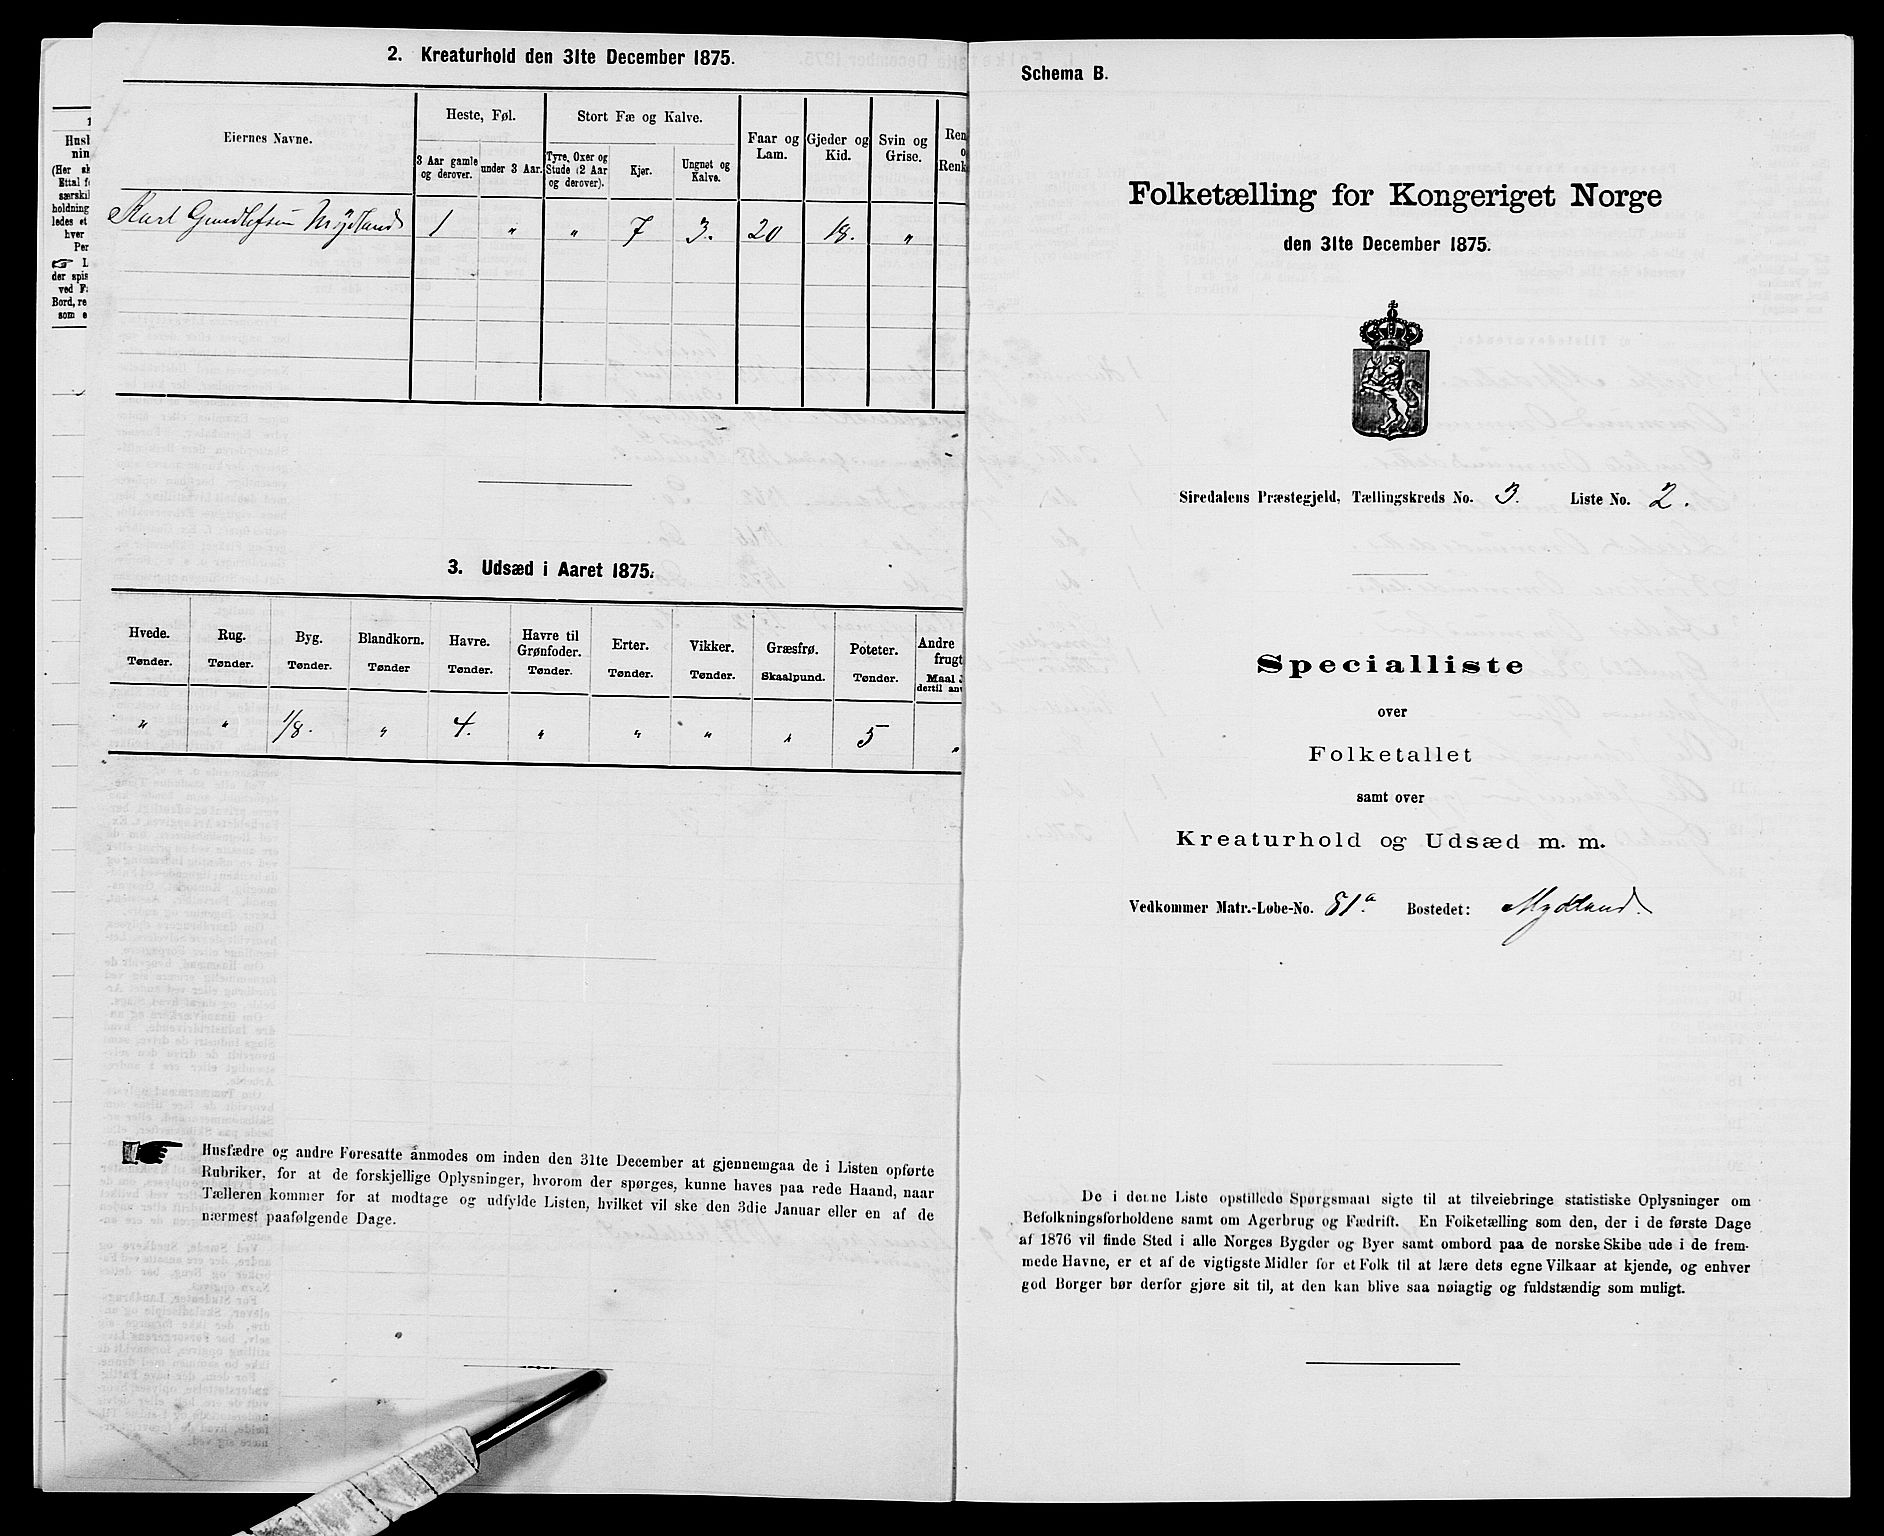 2. Kreaturhold den 31te December 1875.
Eiernes Navne.
Heste, Føl.
3 Aar gamle og derover.
under 3 Aar.
Stort Fæ og Kalve.
Tyre, Oxer og Stude (2 Aar og derover).
Kjør.
Ungnøt og Kalve.
Faar og Lam.
Gjeder og Kid.
Svin og Grise.
Ren
o
Renk
Karl Gundlefsen Mydland 1 " " 7 3. 20 18. "
3. Udsæd i Aaret 1875.
Hvede. Rug. Byg. Blandkorn. Havre. Havre til Grønfoder. Erter. Vikker. Græsfrø. Poteter. Andre frugt
Tønder. Tønder. Tønder. Tønder Tønder. Tønder. Tønder. Tønder. Skaalpund. Tønder. Maal
dertil anv
" " 1/8. " 4. " " " " 5 "
Husfædre og andre Foresatte anmodes om inden den 31te December at gjennemgaa de i Listen opførte
Rubriker, for at de forskjellige Oplysninger, hvorom der spørges, kunne haves paa rede Haand, naar
Tælleren kommer for at modtage og udfylde Listen, hvilket vil ske den 3die Januar eller en af de
nærmest paafølgende Dage.
Schema B.
Folketælling for Kongeriget Norge
den 31te December 1875.
Siredalens Præstegjeld, Tællingskreds No. 3. Liste No. 2.
Specialliste
over
Folketallet
samt over
Kreaturhold og Udsæd m. m.
Vedkommer Matr.-Løbe-No. 81.a Bostedet: Mydland.
De i denne Liste opstillede Spørgsmaal sigte til at tilveiebringe statistiske Oplysninger om
Befolkningsforholdene samt om Agerbrug og Fædrift. En Folketælling som den, der i de første Dage
af 1876 vil finde Sted i alle Norges Bygder og Byer samt ombord paa de norske Skibe ude i de frem-
mede Havne, er et af de vigtigste Midler for et Folk til at lære dets egne Vilkaar at kjende, og enhver
god Borger bør derfor gjøre sit til, at den kan blive saa nøiagtig og fuldstændig som muligt.